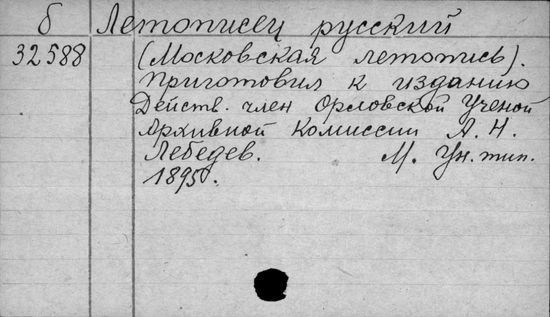 б Летописец русский
32588 (Московская летопись).
Приготовил к изданию
Действ. член Орловской Ученой
Архивной Комиссии А. Н.
Лебедев. М. Ун. тип.
1895.